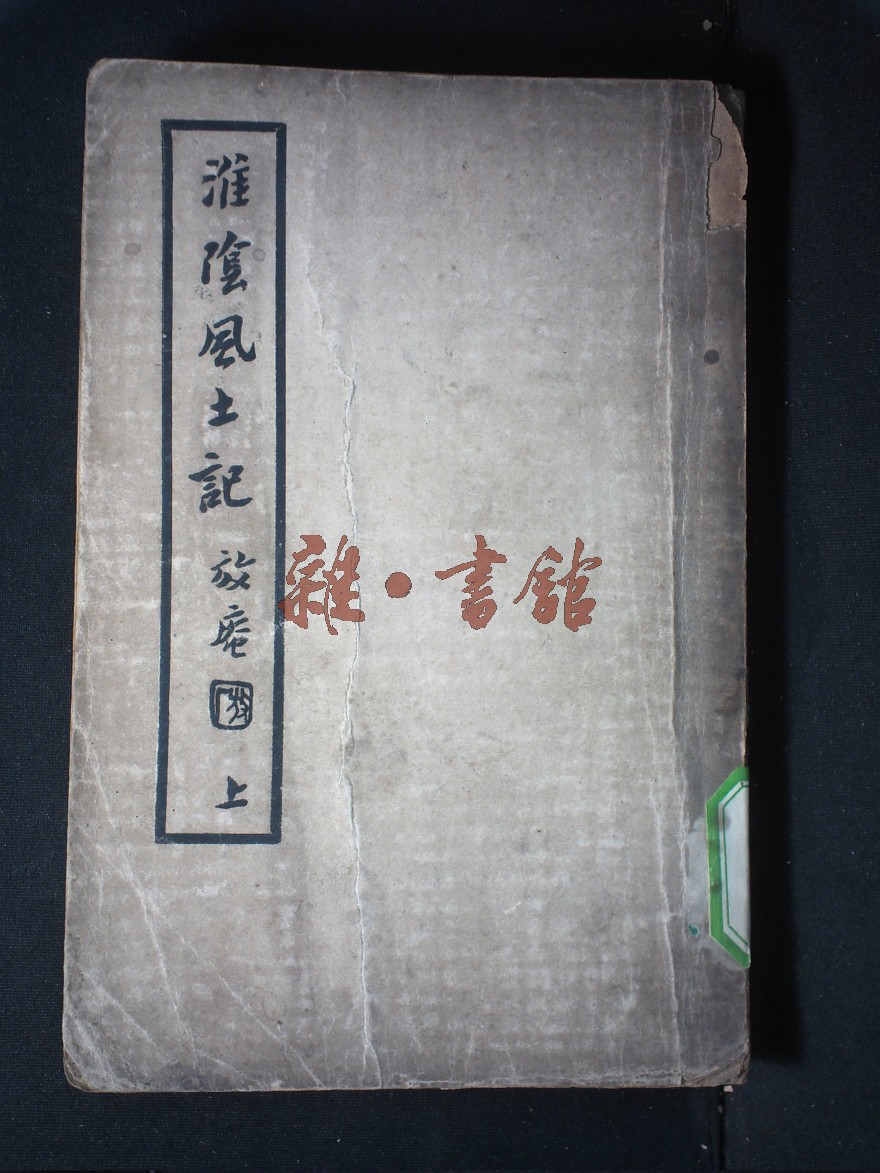 淮陰風土記 放庵 上
雜·書館